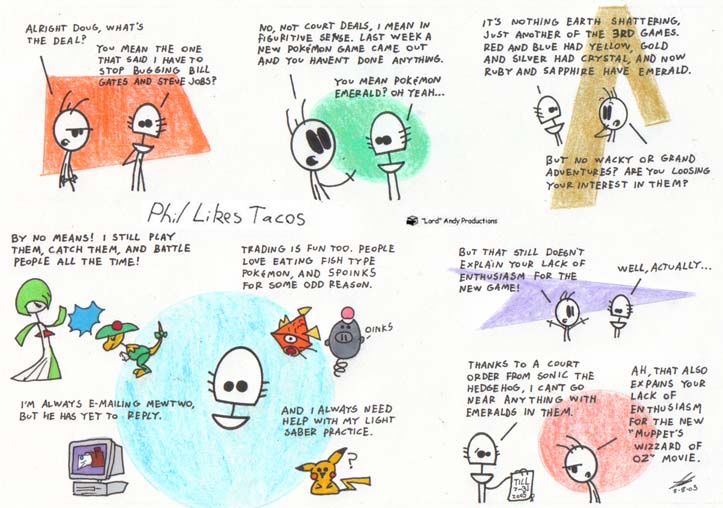 ALRIGHT DOUG, WHAT'S
THE DEAL?
YOU MEAN THE ONE
THAT SAID I HAVE TO
STOP BUGGING BILL
GATES AND STEVE JOBS?
NO, NOT COURT DEALS, I MEAN IN
FIGURITIVE SENSE. LAST WEEK A
NEW POKéMON GAME CAME OUT
AND YOU HAVENT DONE ANYTHING.
YOU MEAN POKéMON
EMERALD? OH YEAH...
IT'S NOTHING EARTH SHATTERING,
JUST ANOTHER OF THE 3RD GAMES.
RED AND BLUE HAD YELLOW, GOLD
AND SILVER HAD CRYSTAL, AND NOW
RUBY AND SAPPHIRE HAVE EMERALD.
BUT NO WACKY OR GRAND
ADVENTURES? ARE YOU LOOSING
YOUR INTEREST IN THEM?
Phil Likes Tacos
"Lord" Andy Productions
BY NO MEANS! I STILL PLAY
THEM, CATCH THEM, AND BATTLE
PEOPLE ALL THE TIME!
TRADING IS FUN TOO. PEOPLE
LOVE EATING FISH TYPE
POKéMON, AND SPOINKS
FOR SOME ODD REASON.
OINKS
I'M ALWAYS E-MAILING MEWTWO,
BUT HE HAS YET TO REPLY.
AND I ALWAYS NEED
HELP WITH MY LIGHT
SABER PRACTICE.
?
BUT THAT STILL DOESN'T
EXPLAIN YOUR LACK OF
ENTHUSIASM FOR THE
NEW GAME!
WELL, ACTUALLY...
THANKS TO A COURT
ORDER FROM SONIC THE
HEDGEHOG, I CANT GO
NEAR ANYTHING WITH
EMERALDS IN THEM.
TILL
7-31
2005
AH, THAT ALSO
EXPAINS YOUR
LACK OF
ENTHUSIASM
FOR THE NEW
"MUPPET'S
WIZZARD OF
OZ" MOVIE.